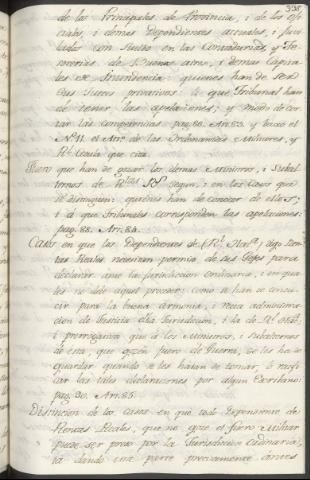 de las Principales de Provincia, i de los Ofi
ciales, i demas Dependientes actuales, i jubi
lados con sueldo en las Contadurias, y The
sorerias de Buenos aires, i demas Capita
les de Intendencia: quienes han de ser
sus Jueces privativos: à que Tribunal han
de tener las apelaciones; y modo de cor
tar las competencias. pag. 86. Art. 83. y bajo el
Nº 11. el Art. de las Ordenanzas Militares, y
Rl. Cedula que cita.
Fuero que han de gozar los demas Ministros, i Subal
ternos de Rentas segun, i en los Casos que
se distinguen: quienes han de conocer de ellos;
i à que Tribunales corresponden las apelaciones:
pag. 88. Art. 84.
Casos en que los Dependientes de Rl. Haza. digo Ren
tas Reales necesitan permiso de sus Gefes para
declarar ante la Jurisdiccion Ordinaria, i en que
les no debe aquel proceder: como se han de condu
cir para la buena armonia, i recta administra
cion de Justicia esta Jurisdiccion, i la de Rl. Hda.
i prerrogativa que à los Ministros, i Subalternos
de esta, que gozen fuero de Guerra, se les ha de
guardar quando se les haian de tomar, ò recivir
las tales declaraciones por algun Escribano:
pag. 90. Art. 85.
Distincion de los casos en que todo Dependiente de
Rentas Reales, que no goze el fuero Militar
puede ser preso por la Jurisdiccion Ordinaria,
ia dando una parte precisamente antes